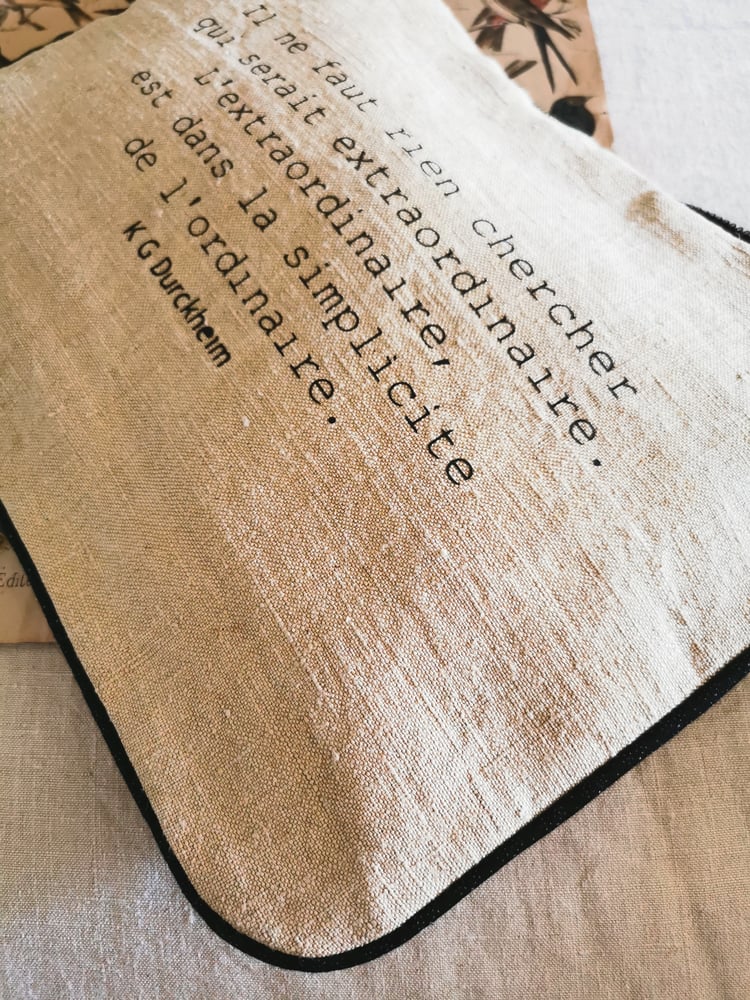 Il ne faut rien chercher
qui serait extraordinaire.
L'extraordinaire,
est dans la simplicite
de l'ordinaire.
K G Durckheim